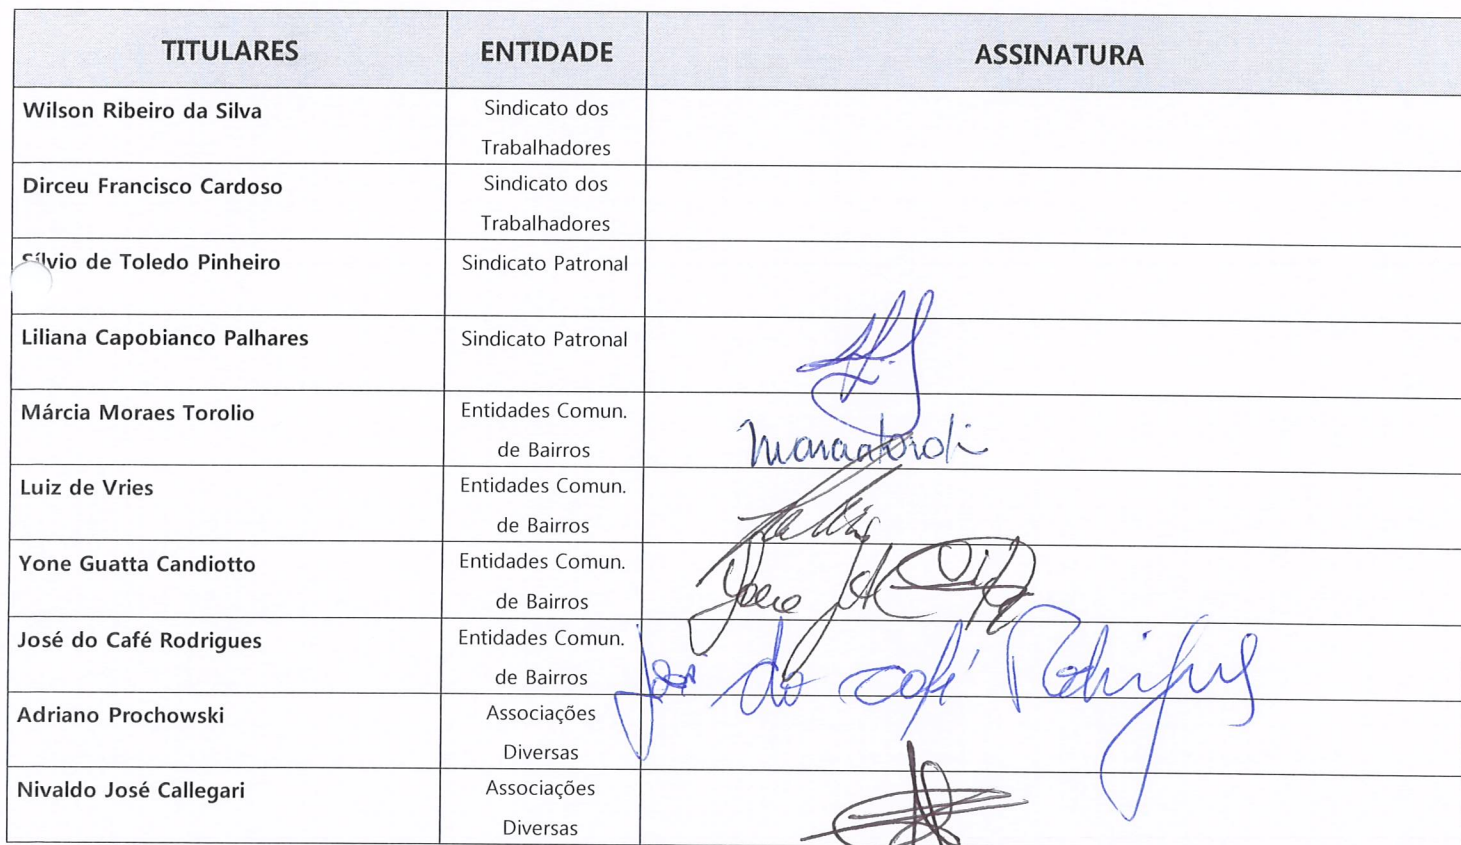 TITULARES ENTIDADE ASSINATURA
Wilson Ribeiro da Silva Sindicato dos
Trabalhadores
Dirceu Francisco Cardoso Sindicato dos
Trabalhadores
Sílvio de Toledo Pinheiro Sindicato Patronal
Liliana Capobianco Palhares Sindicato Patronal
Márcia Moraes Torolio Entidades Comun.
de Bairros
Luiz de Vries Entidades Comun.
de Bairros
Yone Guatta Candiotto Entidades Comun.
de Bairros
Yone
José do Café Rodrigues Entidades Comun.
de Bairros
José do Café Rodrigues
Adriano Prochowski Associações
Diversas
Nivaldo José Callegari Associações
Diversas